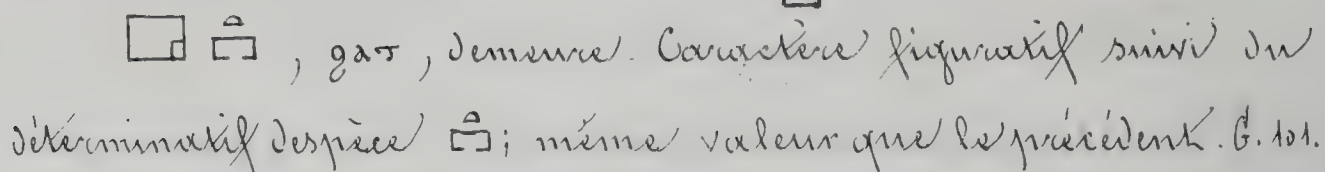 𓉗 𓏏𓉐, ϩⲁⲧ, demeure. Caractère figuratif suivi du
déterminatif d'espèce 𓏏𓉐; même valeur que le précédent. G. 101.